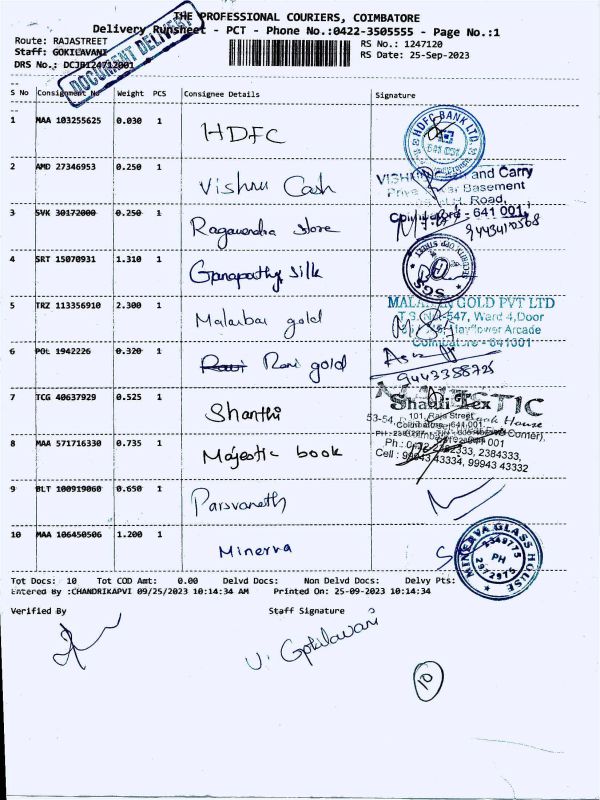 THE PROFESSIONAL COURIERS, COIMBATORE
Delivery Runsheet - PCT - Phone No.:0422-3505555 - Page No.:1
Route: RAJASTREET
RS No.: 1247120
Staff: GOKILAVANI
RS Date: 25-Sep-2023
DRS No.: DCJB124712001
DOCUMENT DELIVERY
S No Consignment No Weight PCS Consignee Details Signature
1 MAA 103255625 0.030 1 HDFC
HDFC BANK LTD.
2 AMD 27346953 0.250 1 Vishnu Cash
and Carry
Basement
Road,
641 001
3 SVK 30172000 0.250 1 Ragavendra Store
9443410568
4 SRT 15070931 1.310 1 Ganapathy Silk
SGS
5 TRZ 113356910 2.300 1 Malarbar gold
MALABAR GOLD PVT LTD
T.S. No.-547, Ward 4,Door
Mayflower Arcade
Coimbatore - 641001
6 POL 1942226 0.320 1 Ravi Ravi gold
9443388725
7 TCG 40637929 0.525 1 Shanthi
Shanti Tex
101, Raja Street
Coimbatore-641 001
8 MAA 571716330 0.735 1 Majestic book
MAJESTIC
Book House
Ph.: 0422-2382333, 2384333,
Cell : 99943 43334, 99943 43332
9 BLT 100919060 0.650 1 Parsvanath
10 MAA 106450506 1.200 1 Minerva
MINERVA GLASS HOUSE
PH
2972975
Tot Docs: 10 Tot COD Amt: 0.00 Delvd Docs: Non Delvd Docs: Delvy Pts:
Entered By :CHANDRIKAPVI 09/25/2023 10:14:34 AM Printed On: 25-09-2023 10:14:34
Verified By Staff Signature
V. Gokilavani
10